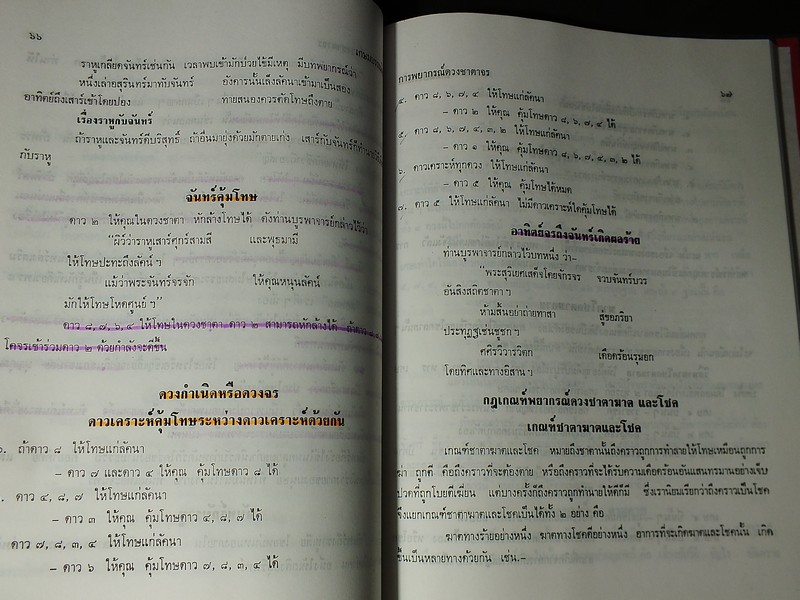 ๖๖
ราหูเกลียดจันทร์เช่นกัน เวลาพบเข้ามักป่วยไข้มีเหตุ มีบทพยากรณ์ว่า
หนึ่งเล่าอสุรินทร์มาทับจันทร์ อังคารนั้นเล็งลัคนาเข้ามาเป็นสอง
อาทิตย์ถึงเสาร์เข้าโดยปอง ทายสนองควรคัดโทษถึงตาย
เรื่องราหูกับจันทร์
ถ้าราหูและจันทร์ดีบริสุทธิ์ ถ้าอื่นมายุ่งด้วยมักตายเก่ง เสาร์กับจันทร์ก็ทำนาย
กับราหู
จันทร์คุ้มโทษ
ดาว ๒ ให้คุณในดวงชาตา หักล้างโทษได้ ดังท่านบูรพาจารย์กล่าวไว้ว่า
“ผิว์ว่าราหูเสาร์ศุกร์สามสี และพุธมามี
ให้โทษปะทะถึงลัคน์ ฯ
แม้ว่าพระจันทร์จรจัก ให้คุณหนุนลัคน์
มักให้โทษโหดศูนย์ ฯ”
ดาว ๘, ๗, ๖, ๔ ให้โทษในดวงชาตา ดาว ๒ สามารถหักล้างได้ ถ้าดาว
โคจรเข้าร่วมดาว ๒ ด้วยกำลังจะดีขึ้น
ดวงกำเนิดหรือดวงจร
ดาวเคราะห์คุ้มโทษระหว่างดาวเคราะห์ด้วยกัน
๑. ถ้าดาว ๘ ให้โทษแก่ลัคนา
– ดาว ๗ และดาว ๔ ให้คุณ คุ้มโทษดาว ๘ ได้
ดาว ๔, ๘, ๗ ให้โทษแก่ลัคนา
– ดาว ๓ ให้คุณ คุ้มโทษดาว ๔, ๘, ๗ ได้
ดาว ๗, ๘, ๓, ๔ ให้โทษแก่ลัคนา
– ดาว ๖ ให้คุณ คุ้มโทษดาว ๗, ๘, ๓, ๔ ได้
การพยากรณ์ดวงชาตาจร
๖๗
๔. ดาว ๘, ๖, ๗, ๔ ให้โทษแก่ลัคนา
– ดาว ๒ ให้คุณ คุ้มโทษดาว ๘, ๖, ๗, ๔ ได้
๕. ดาว ๘, ๖, ๗, ๔, ๓, ๒ ให้โทษแก่ลัคนา
– ดาว ๑ ให้คุณ คุ้มโทษดาว ๘, ๖, ๗, ๔, ๓, ๒ ได้
๖. ดาวเคราะห์ทุกดวง ให้โทษแก่ลัคนา
– ดาว ๕ ให้คุณ คุ้มโทษได้หมด
๗. ดาว ๕ ให้โทษแก่ลัคนา ไม่มีดาวเคราะห์ใดคุ้มโทษได้
อาทิตย์จรถึงจันทร์เกิดผลร้าย
ท่านบูรพาจารย์กล่าวไว้บทหนึ่ง ว่า–
“พระสุริเยศเสด็จโดยจักรจร จวบจันทร์บวร
อันสิงสถิตชาตา ฯ
ห้ามสิ้นอย่าถ่ายทาสา สู่ขอภริยา
ประทุฏฐเช่นชูชก ฯ
ศศิรวิวารวิตก เดือดร้อนรุมยอก
โดยทิศและทางอิสาน ฯ
กฎเกณฑ์พยากรณ์ดวงชาตาฆาต และโชค
เกณฑ์ชาตาฆาตและโชค
เกณฑ์ชาตาฆาตและโชค หมายถึงชาตานั้นถึงคราวถูกการทำลายให้โทษเหมือนถูกการ
ฆ่า ถูกตี คือถึงคราวที่จะต้องตาย หรือถึงคราวที่จะได้รับความเดือดร้อนอันแสนทรมานอย่างเจ็บ
ปวดที่ถูกโบยตีเฆี่ยน แต่บางครั้งก็ถึงคราวถูกทำนายให้ดีก็มี ซึ่งเรานิยมเรียกว่าถึงคราวเป็นโชค
จึงแยกเกณฑ์ชาตาฆาตและโชคเป็นได้ทั้ง ๒ อย่าง คือ
ฆาตทางร้ายอย่างหนึ่ง ฆาตทางโชคดีอย่างหนึ่ง อาการที่จะเกิดฆาตและโชคนั้น เกิด
ขึ้นเป็นหลายทางด้วยกัน เช่น.–